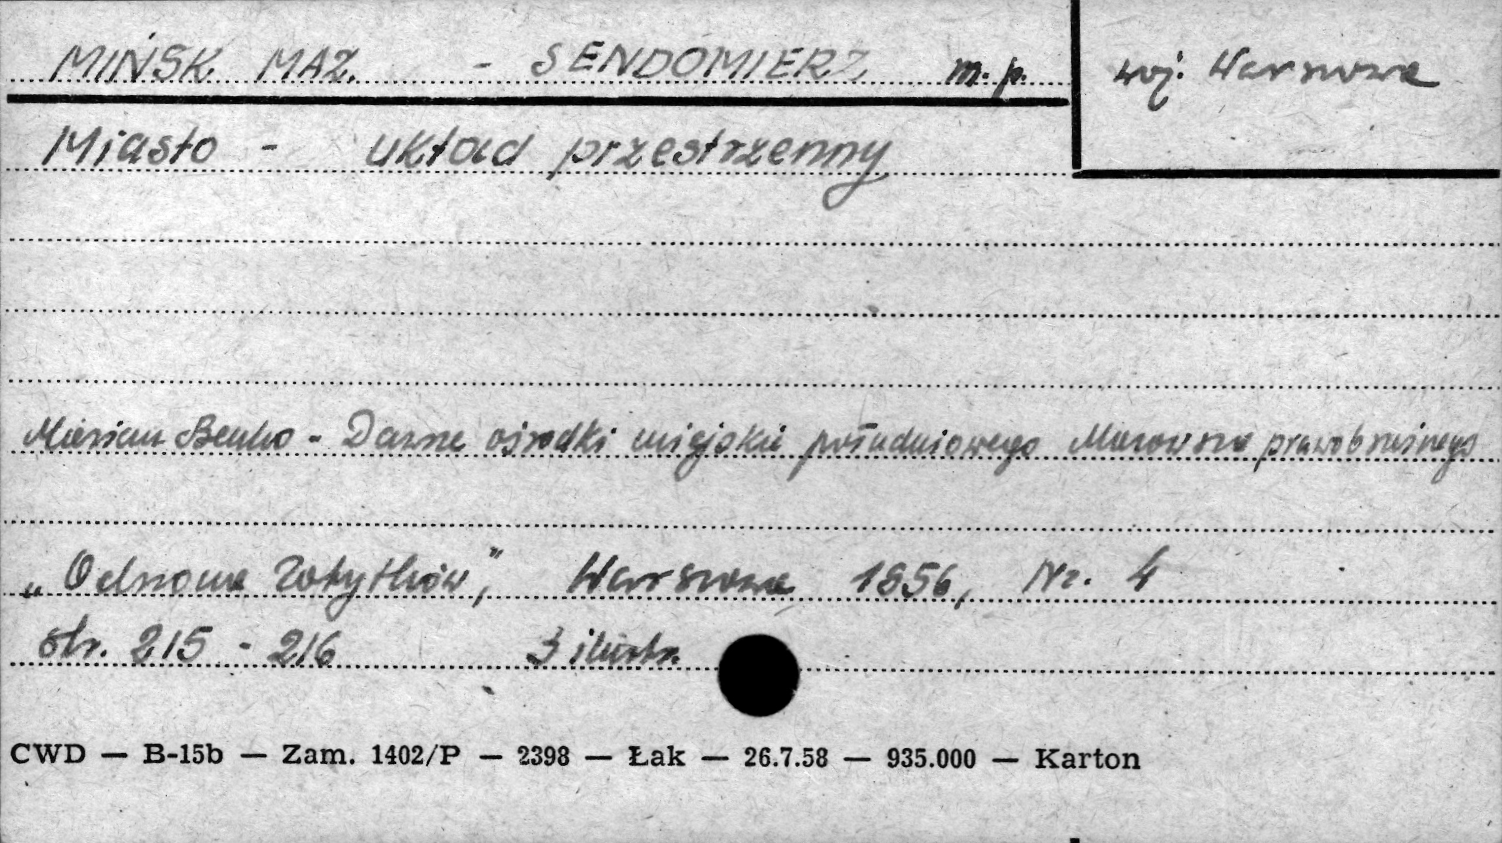 MIŃSK MAZ. - SENDOMIERZ m. p.
woj. Warszawa
Miasto - układ przestrzenny
Marian Benko - Dawne ośrodki miejskie południowego Mazowsza prawobrzeżnego
„Ochrona Zabytków”, Warszawa 1956, Nr. 4
str. 215 - 216 3 ilustr.
CWD — B-15b — Zam. 1402/P — 2398 — Łak — 26.7.58 — 935.000 — Karton